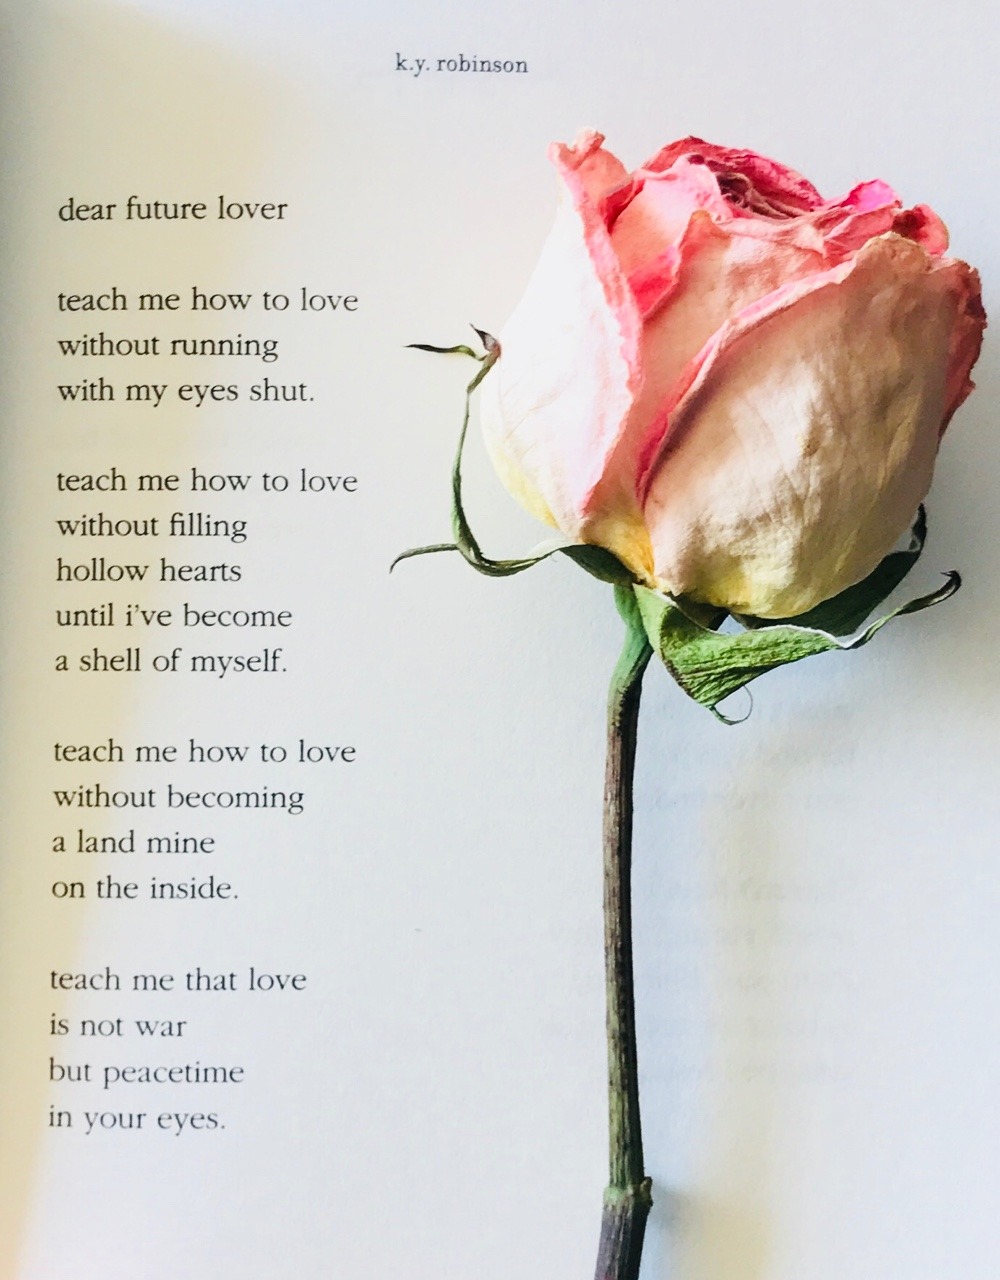 k.y. robinson
dear future lover
teach me how to love
without running
with my eyes shut.
teach me how to love
without filling
hollow hearts
until i've become
a shell of myself.
teach me how to love
without becoming
a land mine
on the inside.
teach me that love
is not war
but peacetime
in your eyes.